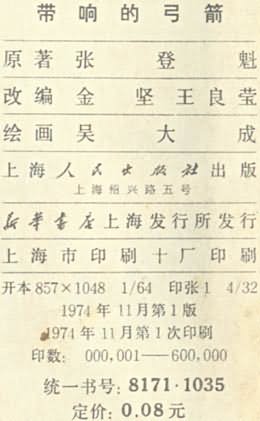 带响的弓箭
原著张登魁
改编金坚王良莹
绘画吴大成
上海人民出版社出版
上海绍兴路五号
新华书店上海发行所发行
上海市印刷十厂印刷
开本 857×1048 1/64 印张 1 4/32
1974 年 11 月第 1 版
1974 年 11 月第 1 次印刷
印数: 000,001——600,000
统一书号: 8171·1035
定价: 0.08 元